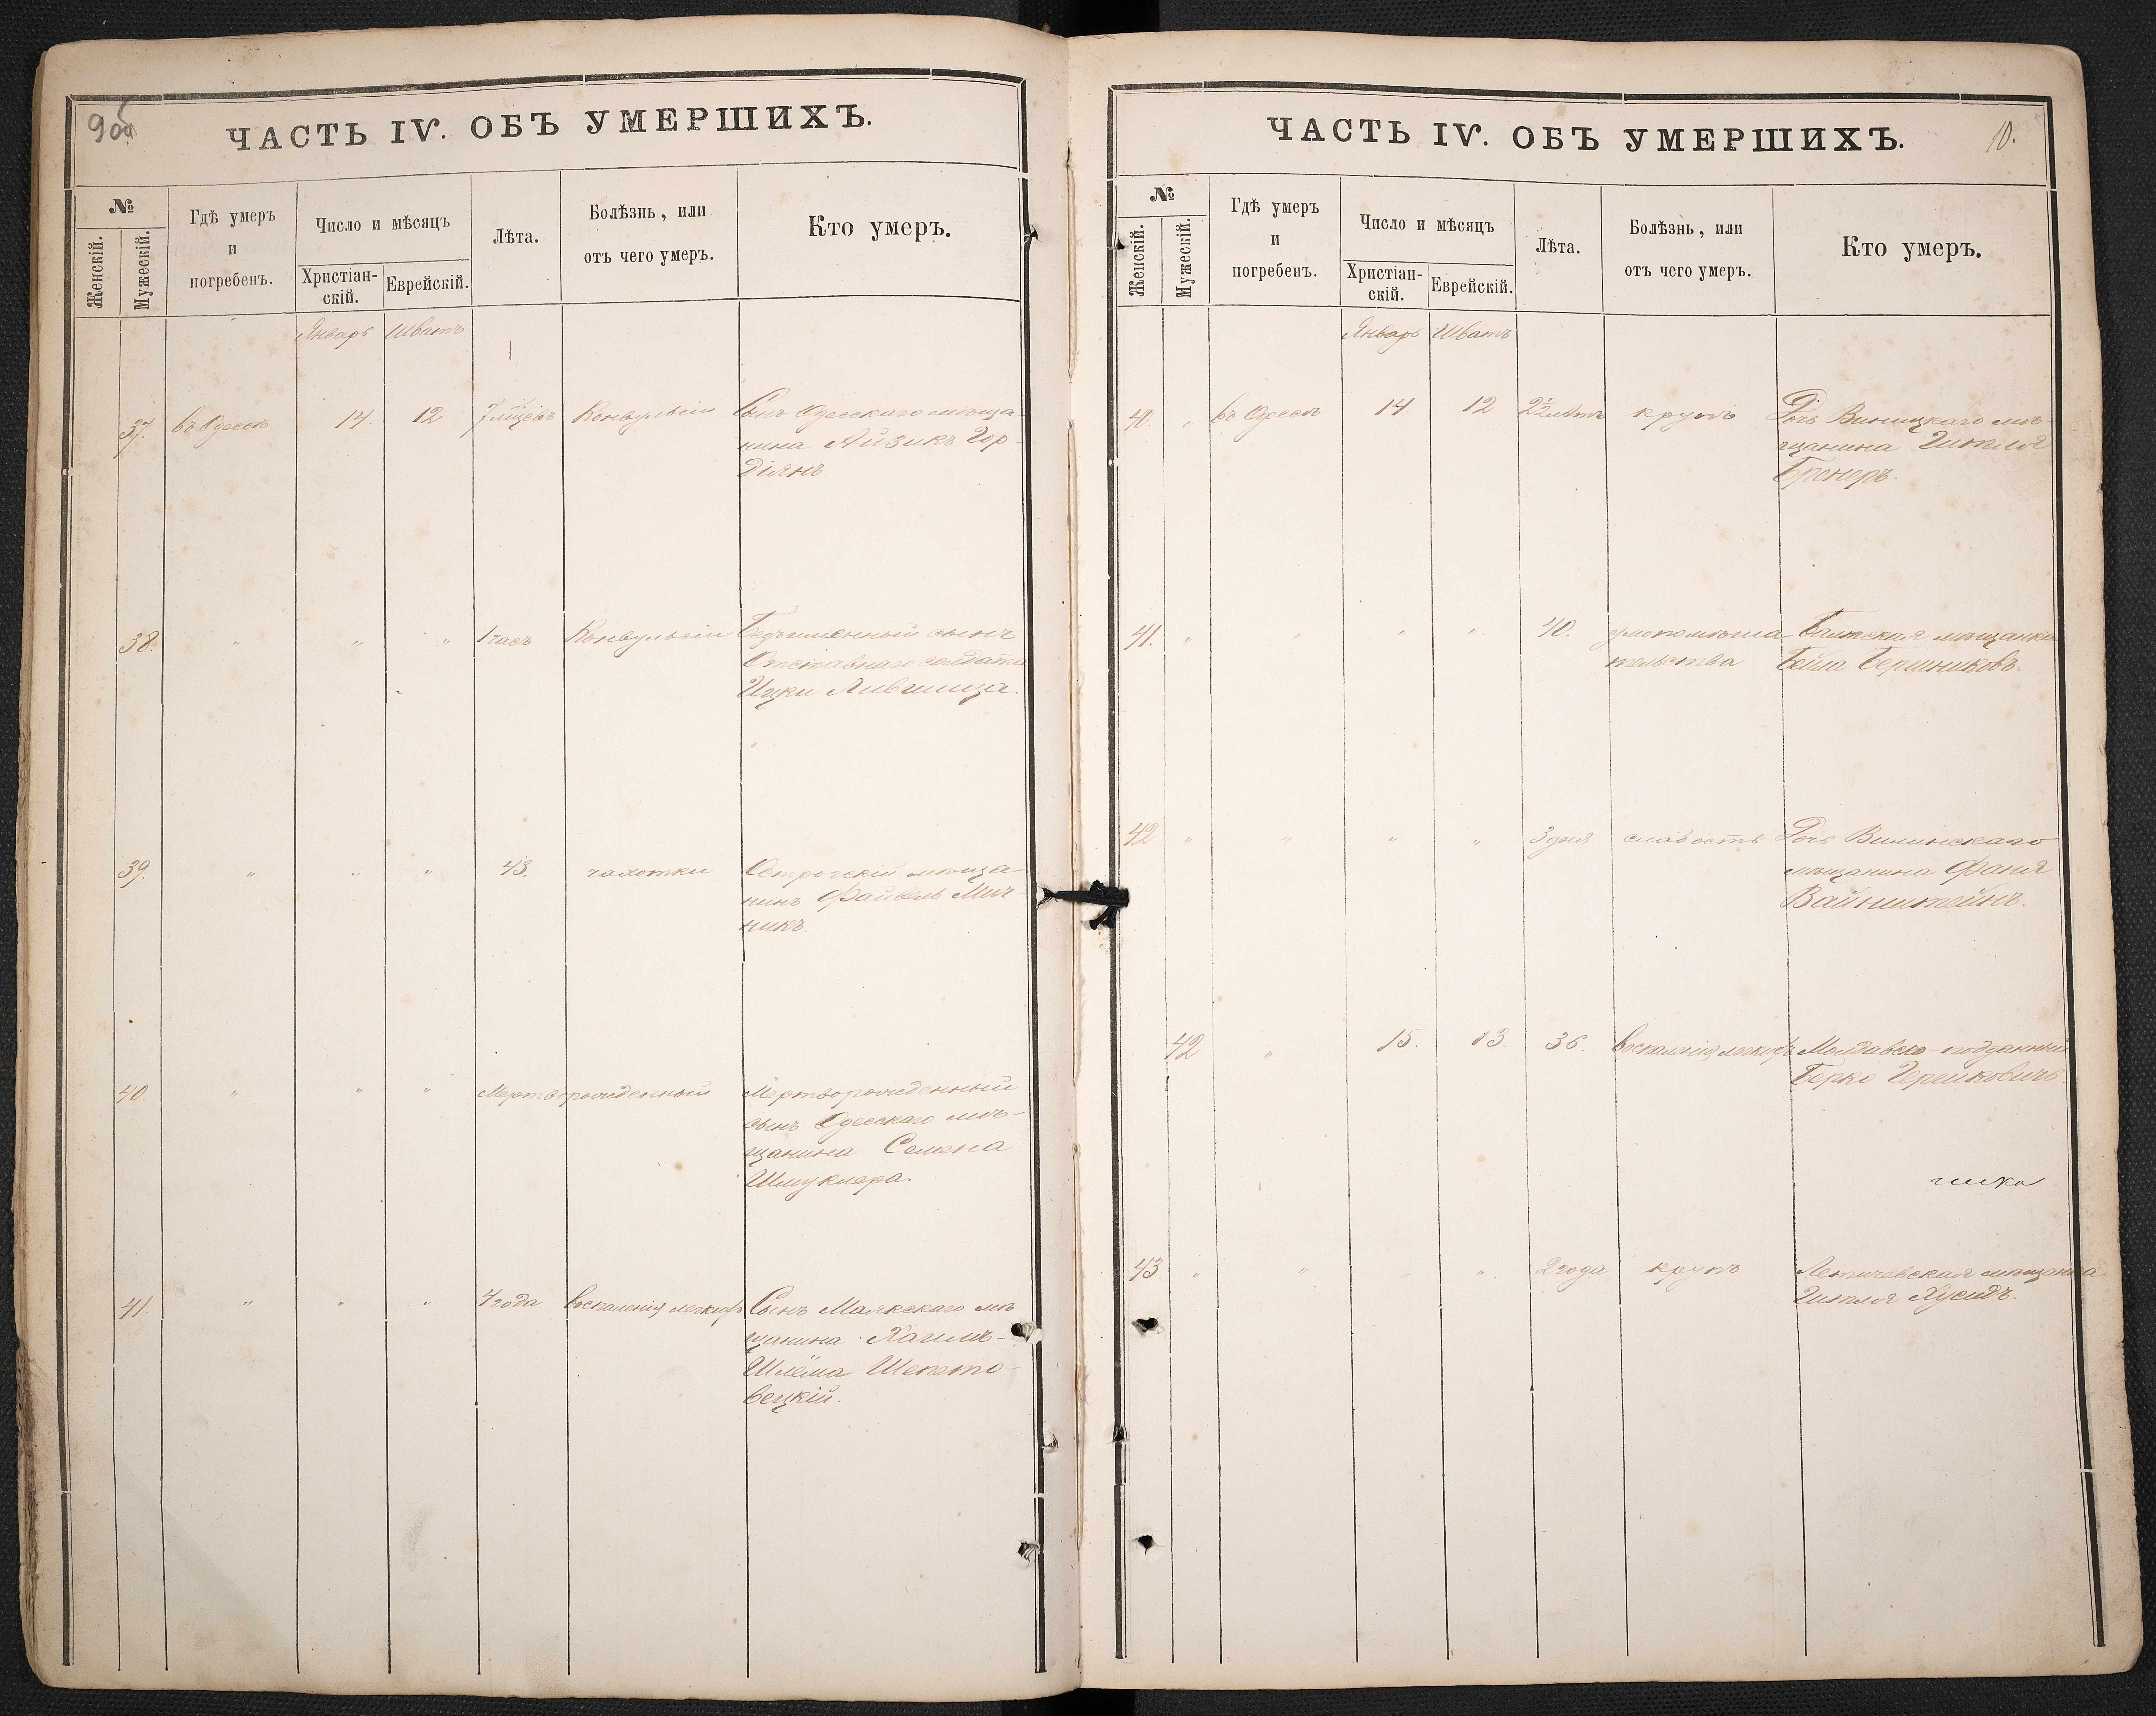 9 об
ЧАСТЬ IV. ОБЪ УМЕРШИХЪ.
№
Женскій.
Мужескій.
Гдѣ умеръ
и
погребенъ.
Число и мѣсяцъ
Христіан-
скій.
Еврейскій.
Лѣта.
Болѣзнь, или
отъ чего умеръ.
Кто умеръ.
Январь Шватъ
37. въ Одессѣ 14. 12 7 Конвульсіи Сынъ Одесскаго мѣща
нина Айзикъ Гор-
діянъ
38. " " " 1 часъ Конвульсіи Безъименный сынъ
Отставнаго солдата
Ицки Лившица.
39. " " " 43. чахотки Острогскій мѣща-
нинъ Файвель Меч
никъ.
40. " " " Мертворожденный Мертворожденный
сынъ Одесскаго мѣ-
щанина Семена
Шмуклера.
41. " " " 4 года воспаленія легкихъ Сынъ Маякскаго мѣ
щанина
Шлёма Шепето-
вецкій.
ЧАСТЬ IV. ОБЪ УМЕРШИХЪ.
10.
№
Женскій.
Мужескій.
Гдѣ умеръ
и
погребенъ.
Число и мѣсяцъ
Христіан-
скій.
Еврейскій.
Лѣта.
Болѣзнь, или
отъ чего умеръ.
Кто умеръ.
Январь Шватъ
40. " въ Одессѣ 14 12 2½ лѣтъ крупъ Дочь Виницкаго мѣ-
щанина Гитля
Бренеръ.
41. " " " " 40. умопомѣша- Балтская мѣщанка
тельства Бейла Бершниковъ.
42 " " " " 3 дня слабость Дочь Виленскаго
мѣщанина Фаня
Вайнштейнъ.
42 " 15. 13 36. воспаленія легкихъ Молдавско-подданный
Берко Гершковичъ.
43 " " " 2 года крупъ Летичевская мѣщанка
Гитля Хусидъ.